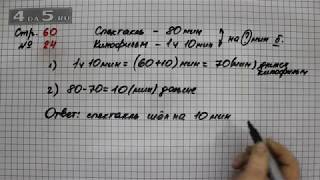 4DA5.RU
Стр. 60 Спектакль – 80 мин
№ 24 Кинофильм – 1ч 10мин на ? мин б.
1) 1ч 10мин = (60+10) мин = 70(мин) длился
кинофильм
2) 80-70=10(мин) дольше
Ответ: спектакль шёл на 10 мин